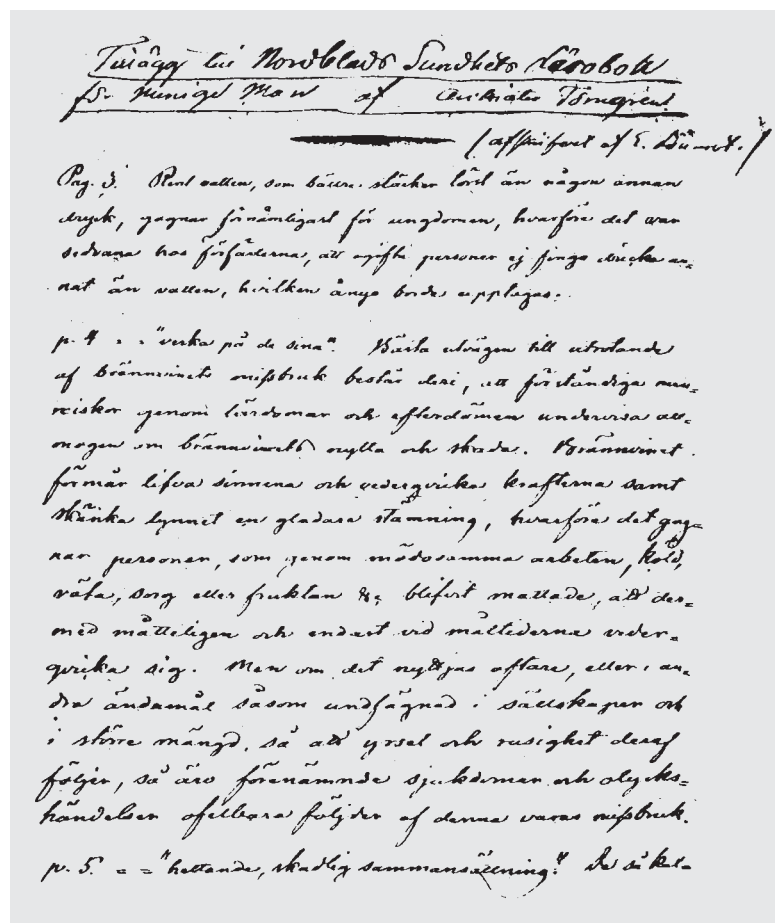 Tillägg till Nordblads Sundhets Lärobok
för menige Man af Archiater Törngren
(afskrifvet af E. .)
Pag. 3. Rent vatten, som bättre släcker törst än någon annan
dryck, gagnar förnämligast för ungdomen, hvarföre det var
sedvana hos förfäderna, att ogifte personer ej fingo dricka an-
nat än vatten, hvilken ånyo borde upplagas.
p. 4 = = "verka på de sina". Bästa utvägen till utrotande
af bränvinets missbruk består deri, att förståndiga men-
niskor genom lärdomar och efterdömen undervisa all-
mogen om bränvinets nytta och skada. Bränvinet
förmår lifva sinnena och vedergvicka krafterna samt
skänka lynnet en gladare stämning, hvarföre det gag-
nar personer, som genom mödosamma arbeten, köld,
väta, sorg eller fruktan &c blifvit mattade, att der-
med måtteligen och endast vid måltiderna veder-
qvicka sig. Men om det nyttjas oftare, eller i an-
dra ändamål såsom undfägnad i sällskaper och
i större mängd, så att yrsel och rusighet deraf
följer, så äro förenämnde sjukdomar och olycks-
händelser ofelbara följder af denna varas missbruk.
p. 5. = = "hettande, skadlig sammansättning." De så kal-